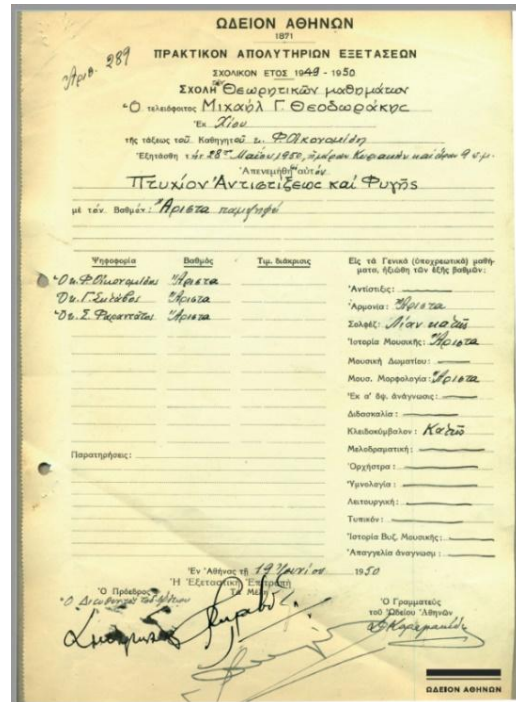 ΩΔΕΙΟΝ ΑΘΗΝΩΝ
1871
ΠΡΑΚΤΙΚΟΝ ΑΠΟΛΥΤΗΡΙΩΝ ΕΞΕΤΑΣΕΩΝ
Αριθ. 289
ΣΧΟΛΙΚΟΝ ΕΤΟΣ 1949 - 1950
ΣΧΟΛΗ Θεωρητικῶν μαθημάτων
Ὁ τελειόφοιτος Μιχαήλ Γ. Θεοδωράκης
Ἐκ Χίου
τῆς τάξεως τοῦ Καθηγητοῦ κ. Φ. Οἰκονομίδη
Ἐξητάσθη τὴν 28ην Μαΐου 1950, ἡμέραν Κυριακήν καί ὥραν 9 π.μ.
Ἀπενεμήθη αὐτόν
Πτυχίον Ἀντιστίξεως καί Φυγῆς
μὲ τὸν Βαθμὸν: Ἄριστα παμψηφεί
Ψηφοφορία Βαθμὸς Τιμ. διάκρισις
Ὁ κ. Φ. Οἰκονομίδης Ἄριστα
Ὁ κ. Γ. Σκλάβος Ἄριστα
Ὁ κ. Σ. Φαραντᾶτος Ἄριστα
Εἰς τὰ Γενικά (ὑποχρεωτικά) μαθή-
ματα, ἠξιώθη τῶν ἑξῆς βαθμῶν:
Ἀντίστιξις:
Ἁρμονία: Ἄριστα
Σολφέζ: Λίαν καλῶς
Ἱστορία Μουσικῆς: Ἄριστα
Μουσική Δωματίου:
Μουσ. Μορφολογία: Ἄριστα
Ἐκ α' ὄψ. ἀνάγνωσις:
Διδασκαλία:
Κλειδοκύμβαλον: Καλῶς
Μελοδραματική:
Ὀρχήστρα:
Ὑμνολογία:
Λειτουργική:
Τυπικόν:
Ἱστορία Βυζ. Μουσικῆς:
Ἀπαγγελία ἀναγνωσμ:
Παρατηρήσεις:
Ἐν Ἀθήναις τῇ 19 Ἰουνίου 1950
Ἡ Ἐξεταστικὴ Ἐπιτροπὴ
Ὁ Πρόεδρος Τὰ Μέλη
Ὁ Διευθυντὴς τοῦ Ὠδείου
Ὁ Γραμματεὺς
τοῦ Ὠδείου Ἀθηνῶν
ΩΔΕΙΟΝ ΑΘΗΝΩΝ